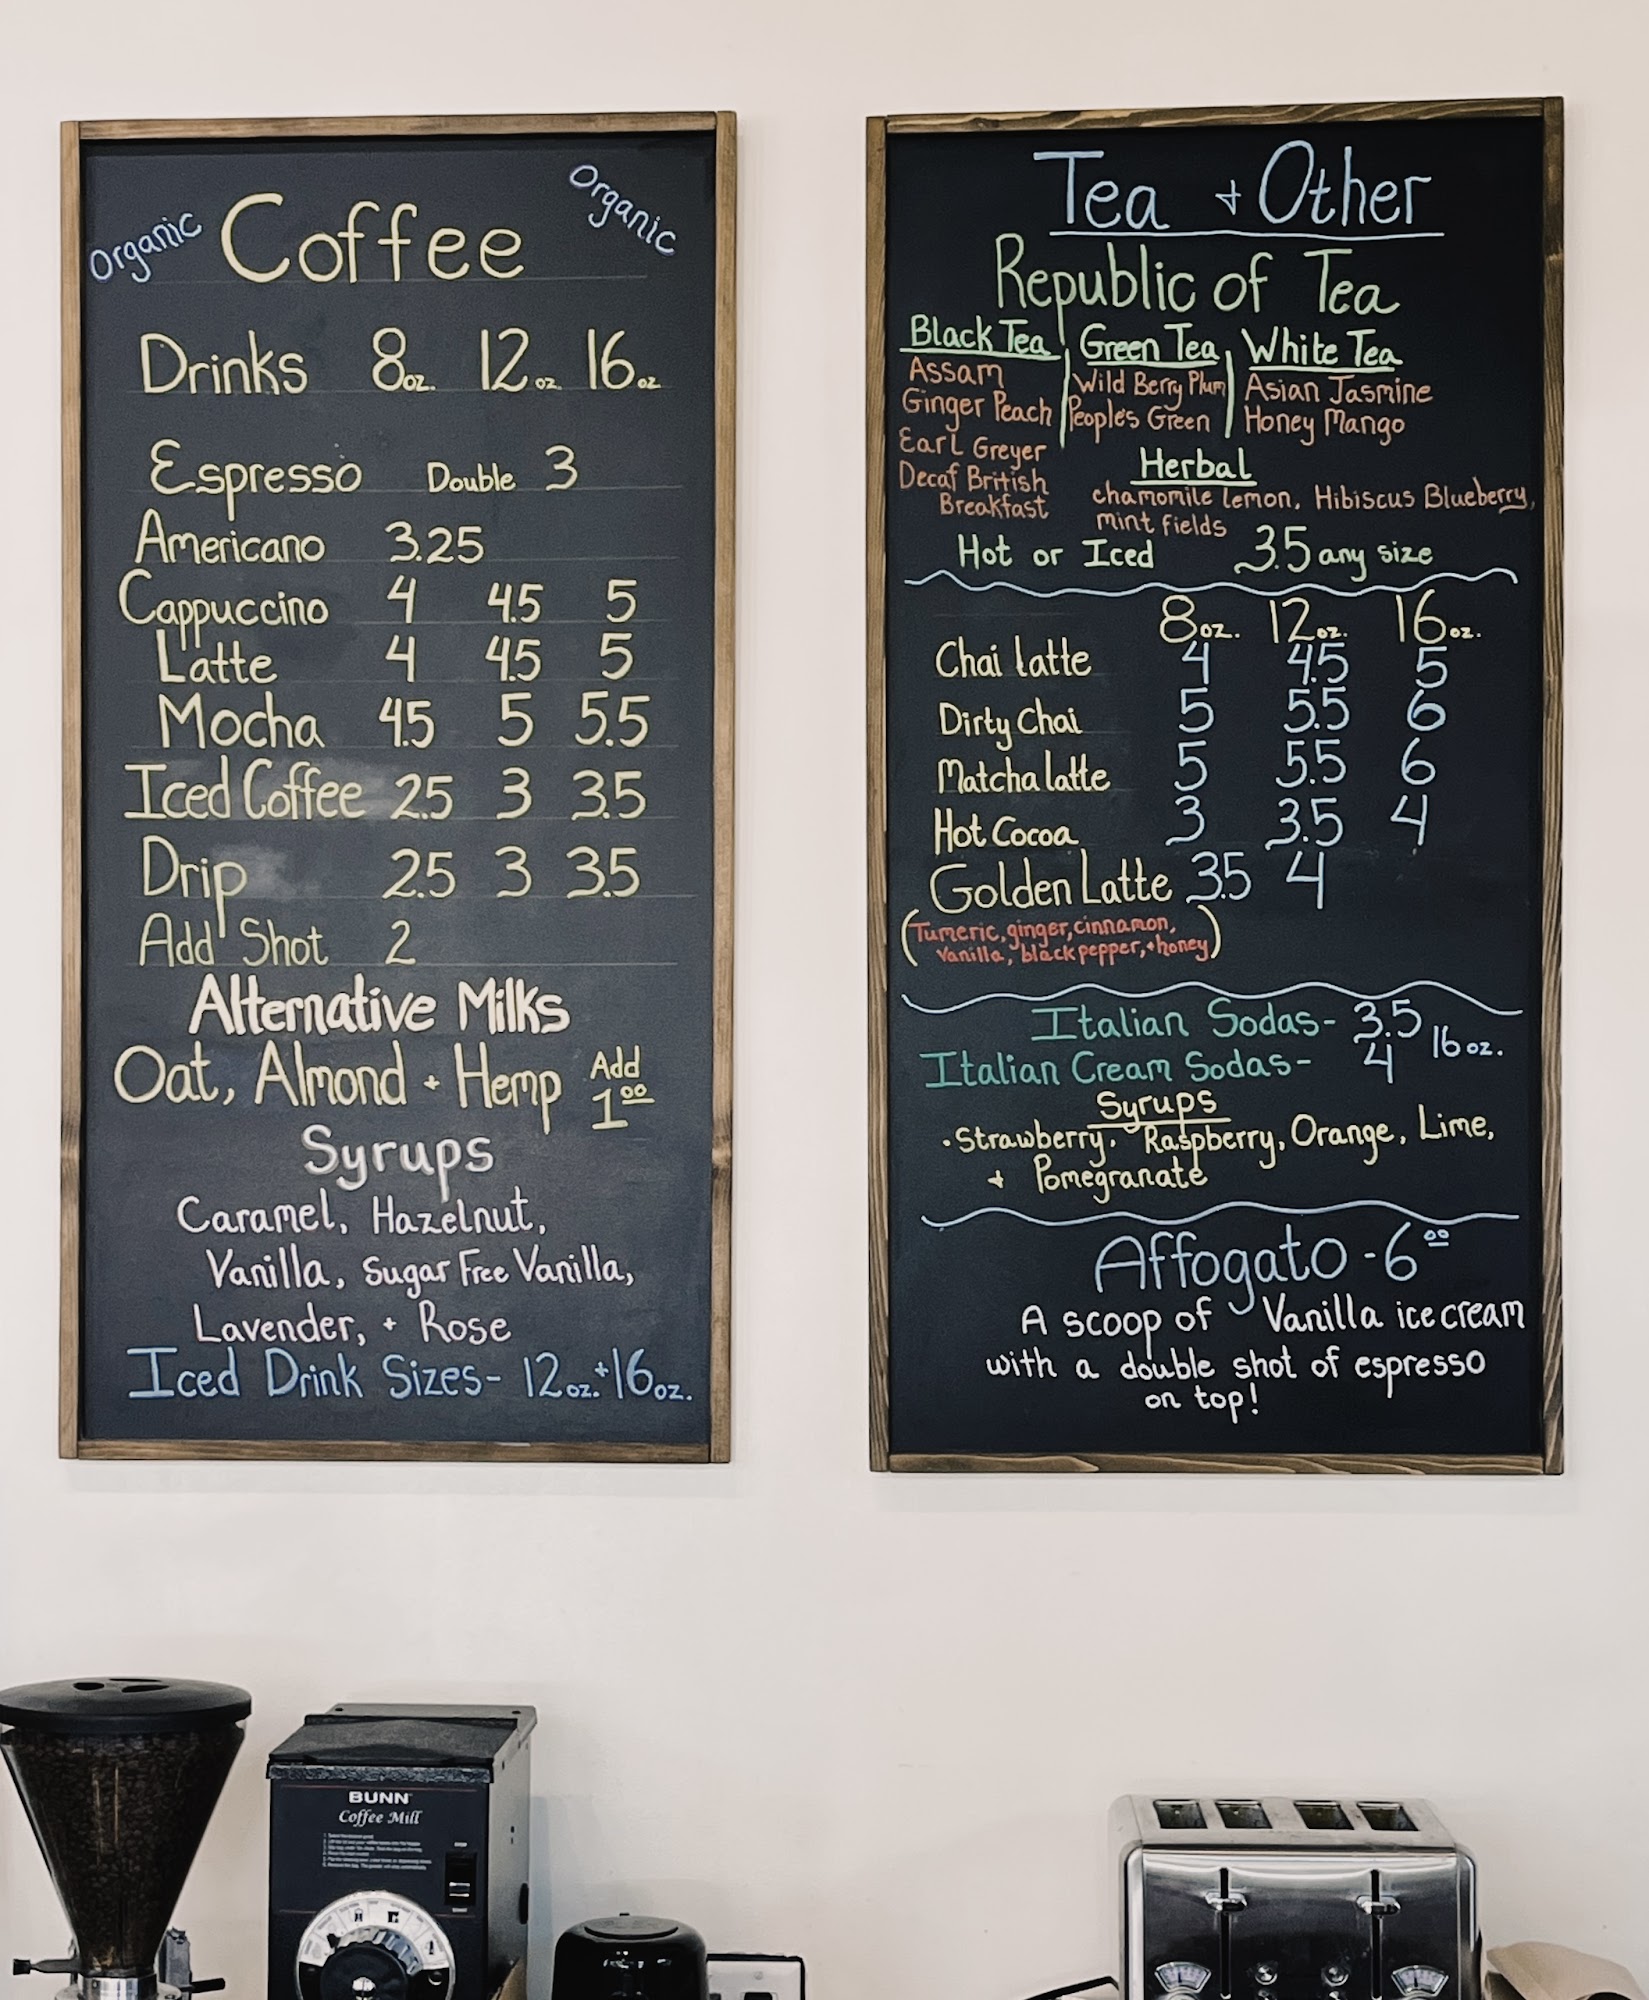 Organic Coffee Organic
Drinks 8oz. 12oz. 16oz
Espresso Double 3
Americano 3.25
Cappuccino 4 4.5 5
Latte 4 4.5 5
Mocha 4.5 5 5.5
Iced Coffee 2.5 3 3.5
Drip 2.5 3 3.5
Add Shot 2
Alternative Milks
Oat, Almond + Hemp Add 1.00
Syrups
Caramel, Hazelnut,
Vanilla, Sugar Free Vanilla,
Lavender, + Rose
Iced Drink Sizes- 12oz.+16oz.
Tea + Other
Republic of Tea
Black Tea
Assam
Ginger Peach
Earl Greyer
Decaf British
Breakfast
Green Tea
Wild Berry Plum
Peoples Green
White Tea
Asian Jasmine
Honey Mango
Herbal
chamomile lemon, Hibiscus Blueberry,
mint fields
Hot or Iced 3.5 any size
8oz. 12oz. 16oz.
Chai latte 4 4.5 5
Dirty Chai 5 5.5 6
Matcha latte 5 5.5 6
Hot Cocoa 3 3.5 4
Golden Latte 3.5 4
(Tumeric, ginger, cinnamon,
vanilla, black pepper, + honey)
Italian Sodas- 3.5
Italian Cream Sodas- 4 16oz.
Syrups
·Strawberry, Raspberry, Orange, Lime,
+ Pomegranate
Affogato - 6.00
A scoop of Vanilla ice cream
with a double shot of espresso
on top!
BUNN
Coffee Mill